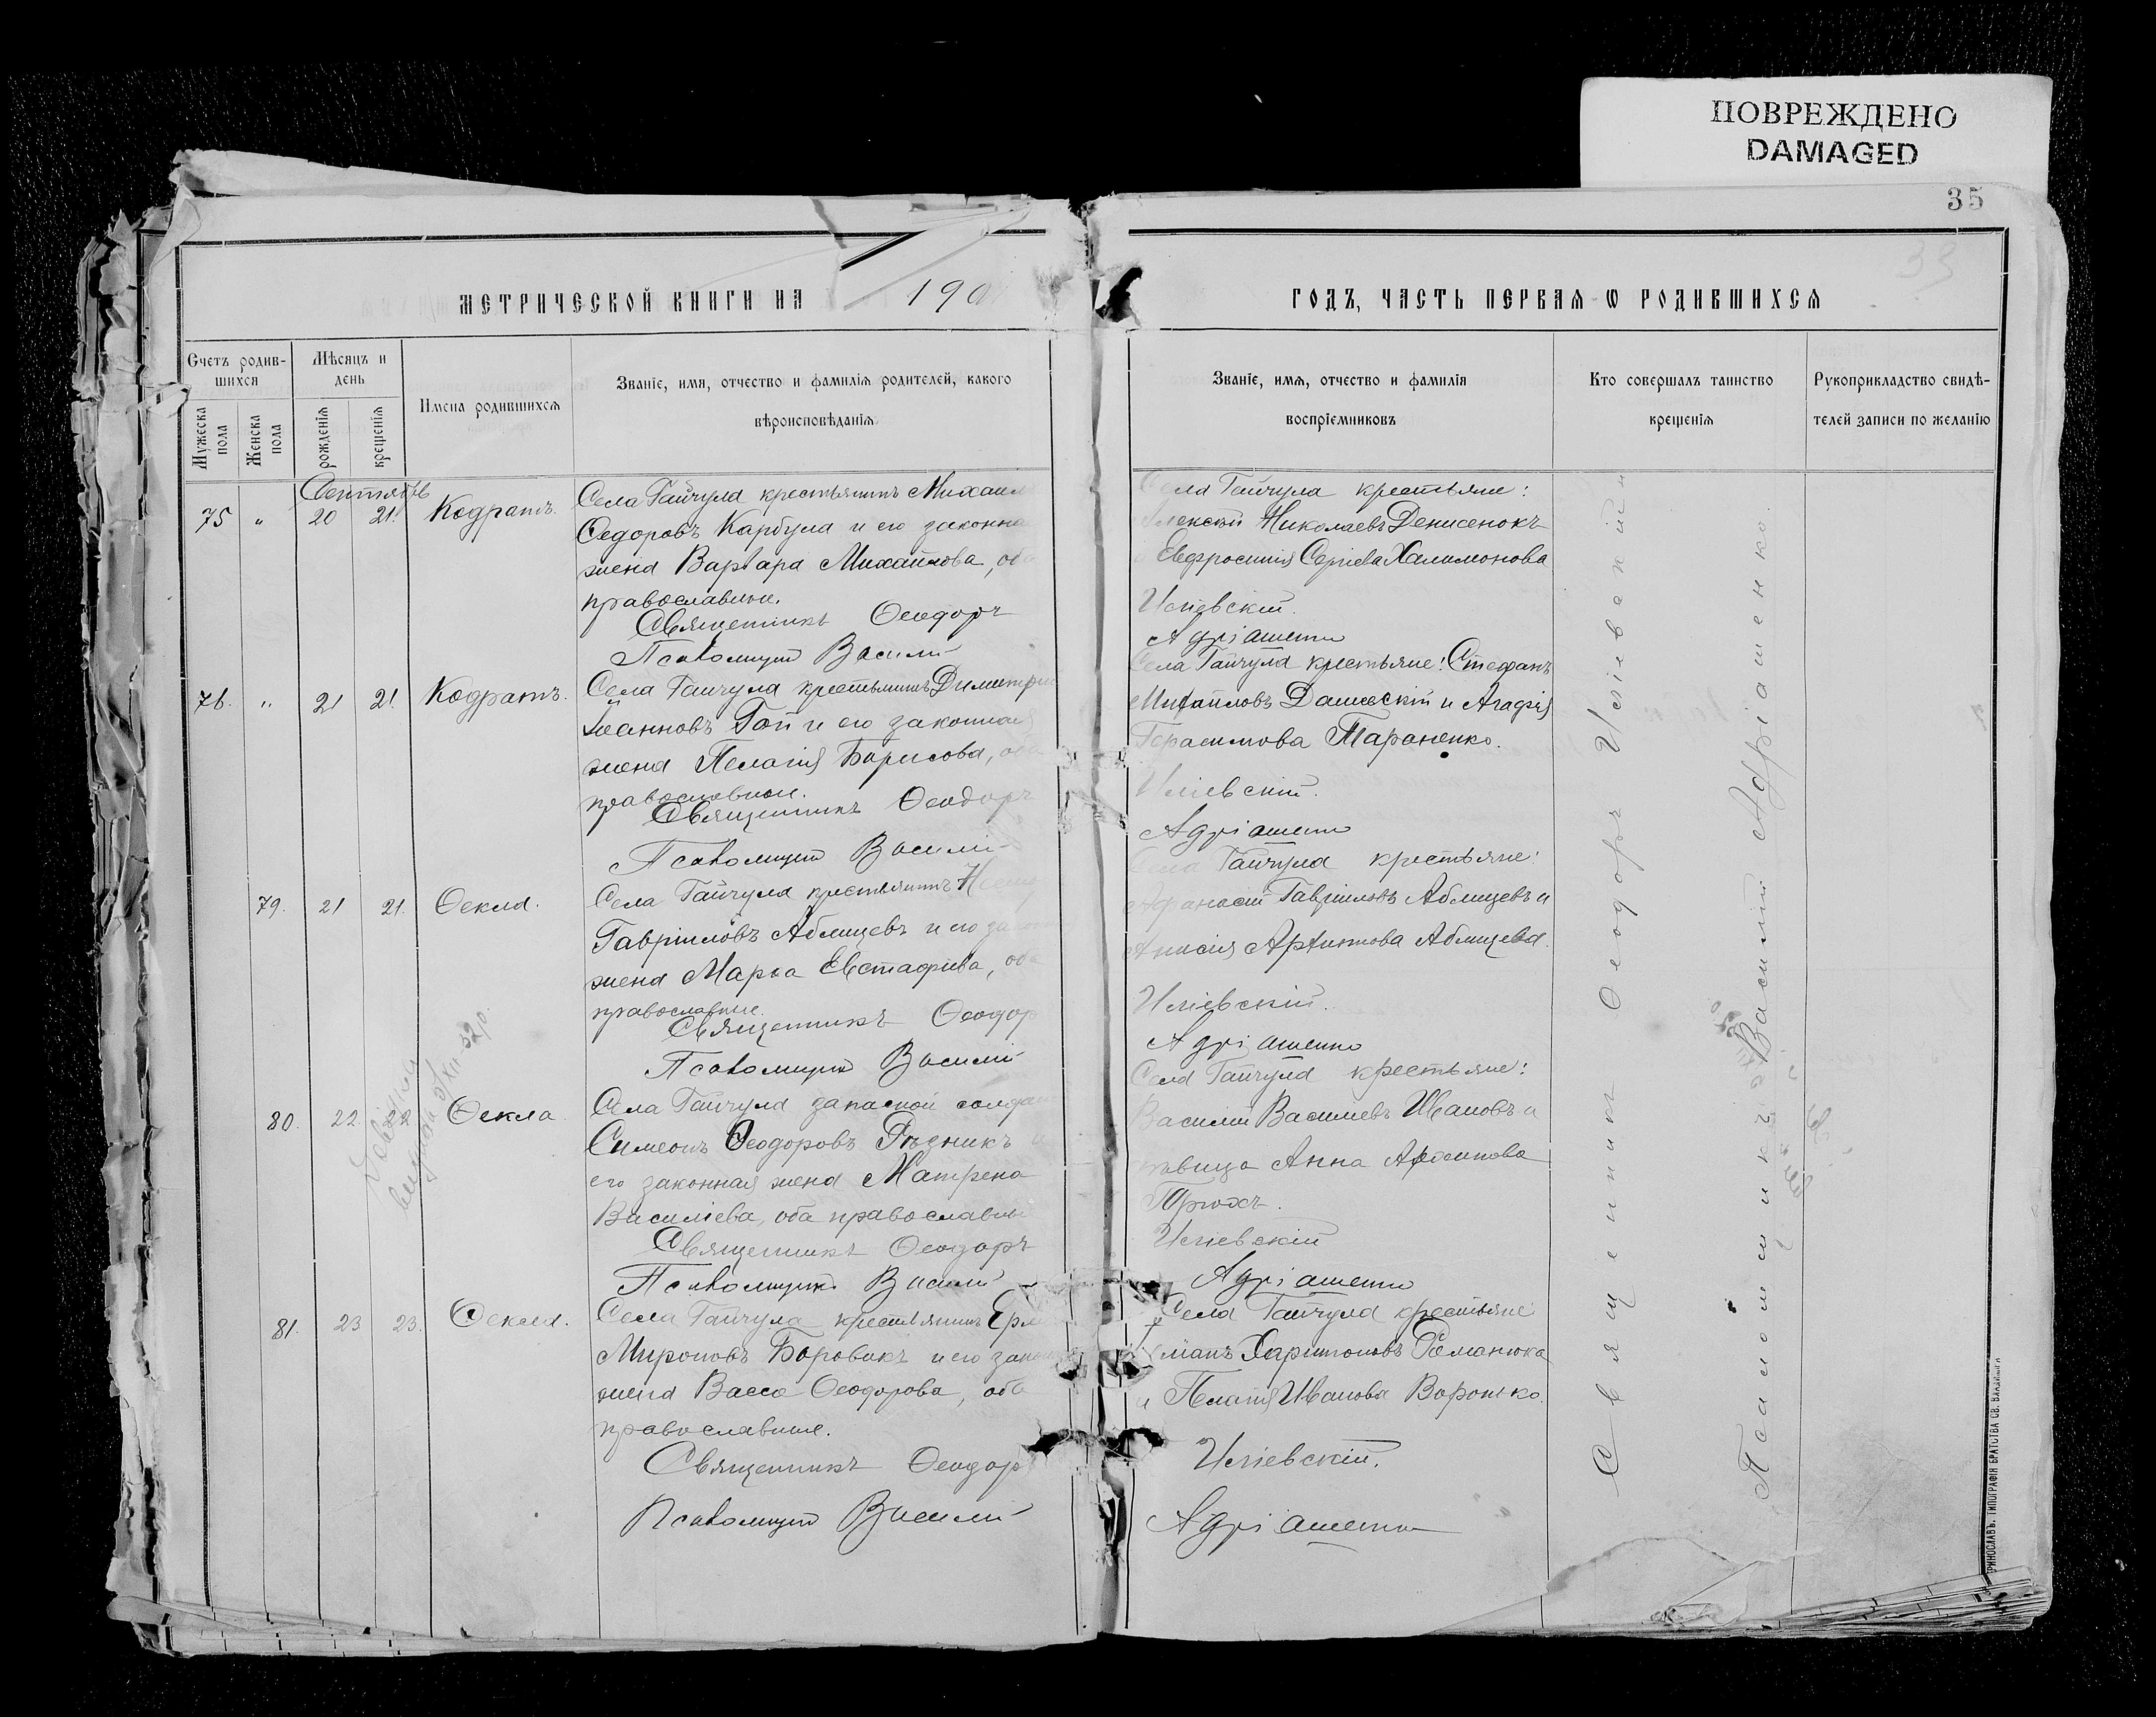 ПОВРЕЖДЕНО
DAMAGED
35
33
МЕТРИЧЕСКОЙ КНИГИ НА 190
ГОДЪ, ЧАСТЬ ПЕРВАЯ Ѡ РОДИВШИХСЯ
Счетъ родив-
шихся
Мужеска
пола
Женска
пола
Мѣсяцъ и
день
рожденія
крещенія
Имена родившихся
Званіе, имя, отчество и фамилія родителей, какого
вѣроисповѣданія
Званіе, имя, отчество и фамилія
воспріемниковъ
Кто совершалъ таинство
крещенія
Рукоприкладство свидѣ-
телей записи по желанію
Сентябрь
75 " 20 21. Кодратъ.
Села Гайчула крестьянинъ Михаил
Ѳедоровъ Карбула и его законна
жена Варвара Михайлова, оба
православные.
Священникъ Ѳеодоръ
Псаломщикъ Василій
Села Гайчула крестьяне:
Алексій Николаевъ Денисенокъ
Евфросинія Сергіева Халимонова
Иліевскій.
Адріашенко
76. " 21 21. Кодратъ.
Села Гайчула крестьянинъ Димитрій
Іоанновъ Гой и его законная
жена Пелагія Борисова, оба
православные.
Священникъ Ѳеодоръ
Псаломщикъ Василій
Села Гайчула крестьяне: Стефанъ
Михайловъ Дашевскій и Агафія
Герасимова Тараненко.
Иліевскій.
Адріашенко
79. 21 21. Ѳекла.
Села Гайчула крестьянинъ
Гавріиловъ Аблицевъ и его зако
жена Марѳа Евстафіева, оба
православные.
Священникъ Ѳеодор
Псаломщикъ Василій
Села Гайчула крестьяне:
Афанасій Гавріиловъ Аблицевъ и
Анисія Аблицева.
Иліевскій.
Адріашенко
80. 22 22 Ѳекла
Села Гайчула запасной солдат
Симеонъ Ѳеодоровъ Рѣзникъ и
его законная жена Матрена
Василіева, оба православны
Священникъ Ѳеодоръ
Псаломщикъ Василій
Села Гайчула крестьяне:
Василій Василіевъ Ивановъ и
дѣвица Анна
Иліевскій
Адріашенко
81. 23 23. Ѳекла.
Села Гайчула крестьянинъ
Мироновъ Боровикъ и его закон
жена Васса Ѳеодорова, оба
православные.
Священникъ Ѳеодор
Псаломщикъ Василій
Села Гайчула крестьяне
Харитоновъ Романюка
и Пелагія Иванова Воронько.
Иліевскій.
Адріашенко
Священникъ Ѳеодоръ Иліевскій
Псаломщикъ Василій Адріашенко